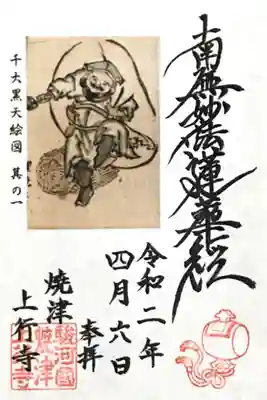 南無妙法蓮華経
千大黒天絵図 其の一
令和二年
四月六日
奉拝
焼津
上行寺
駿河國
焼津
上行寺